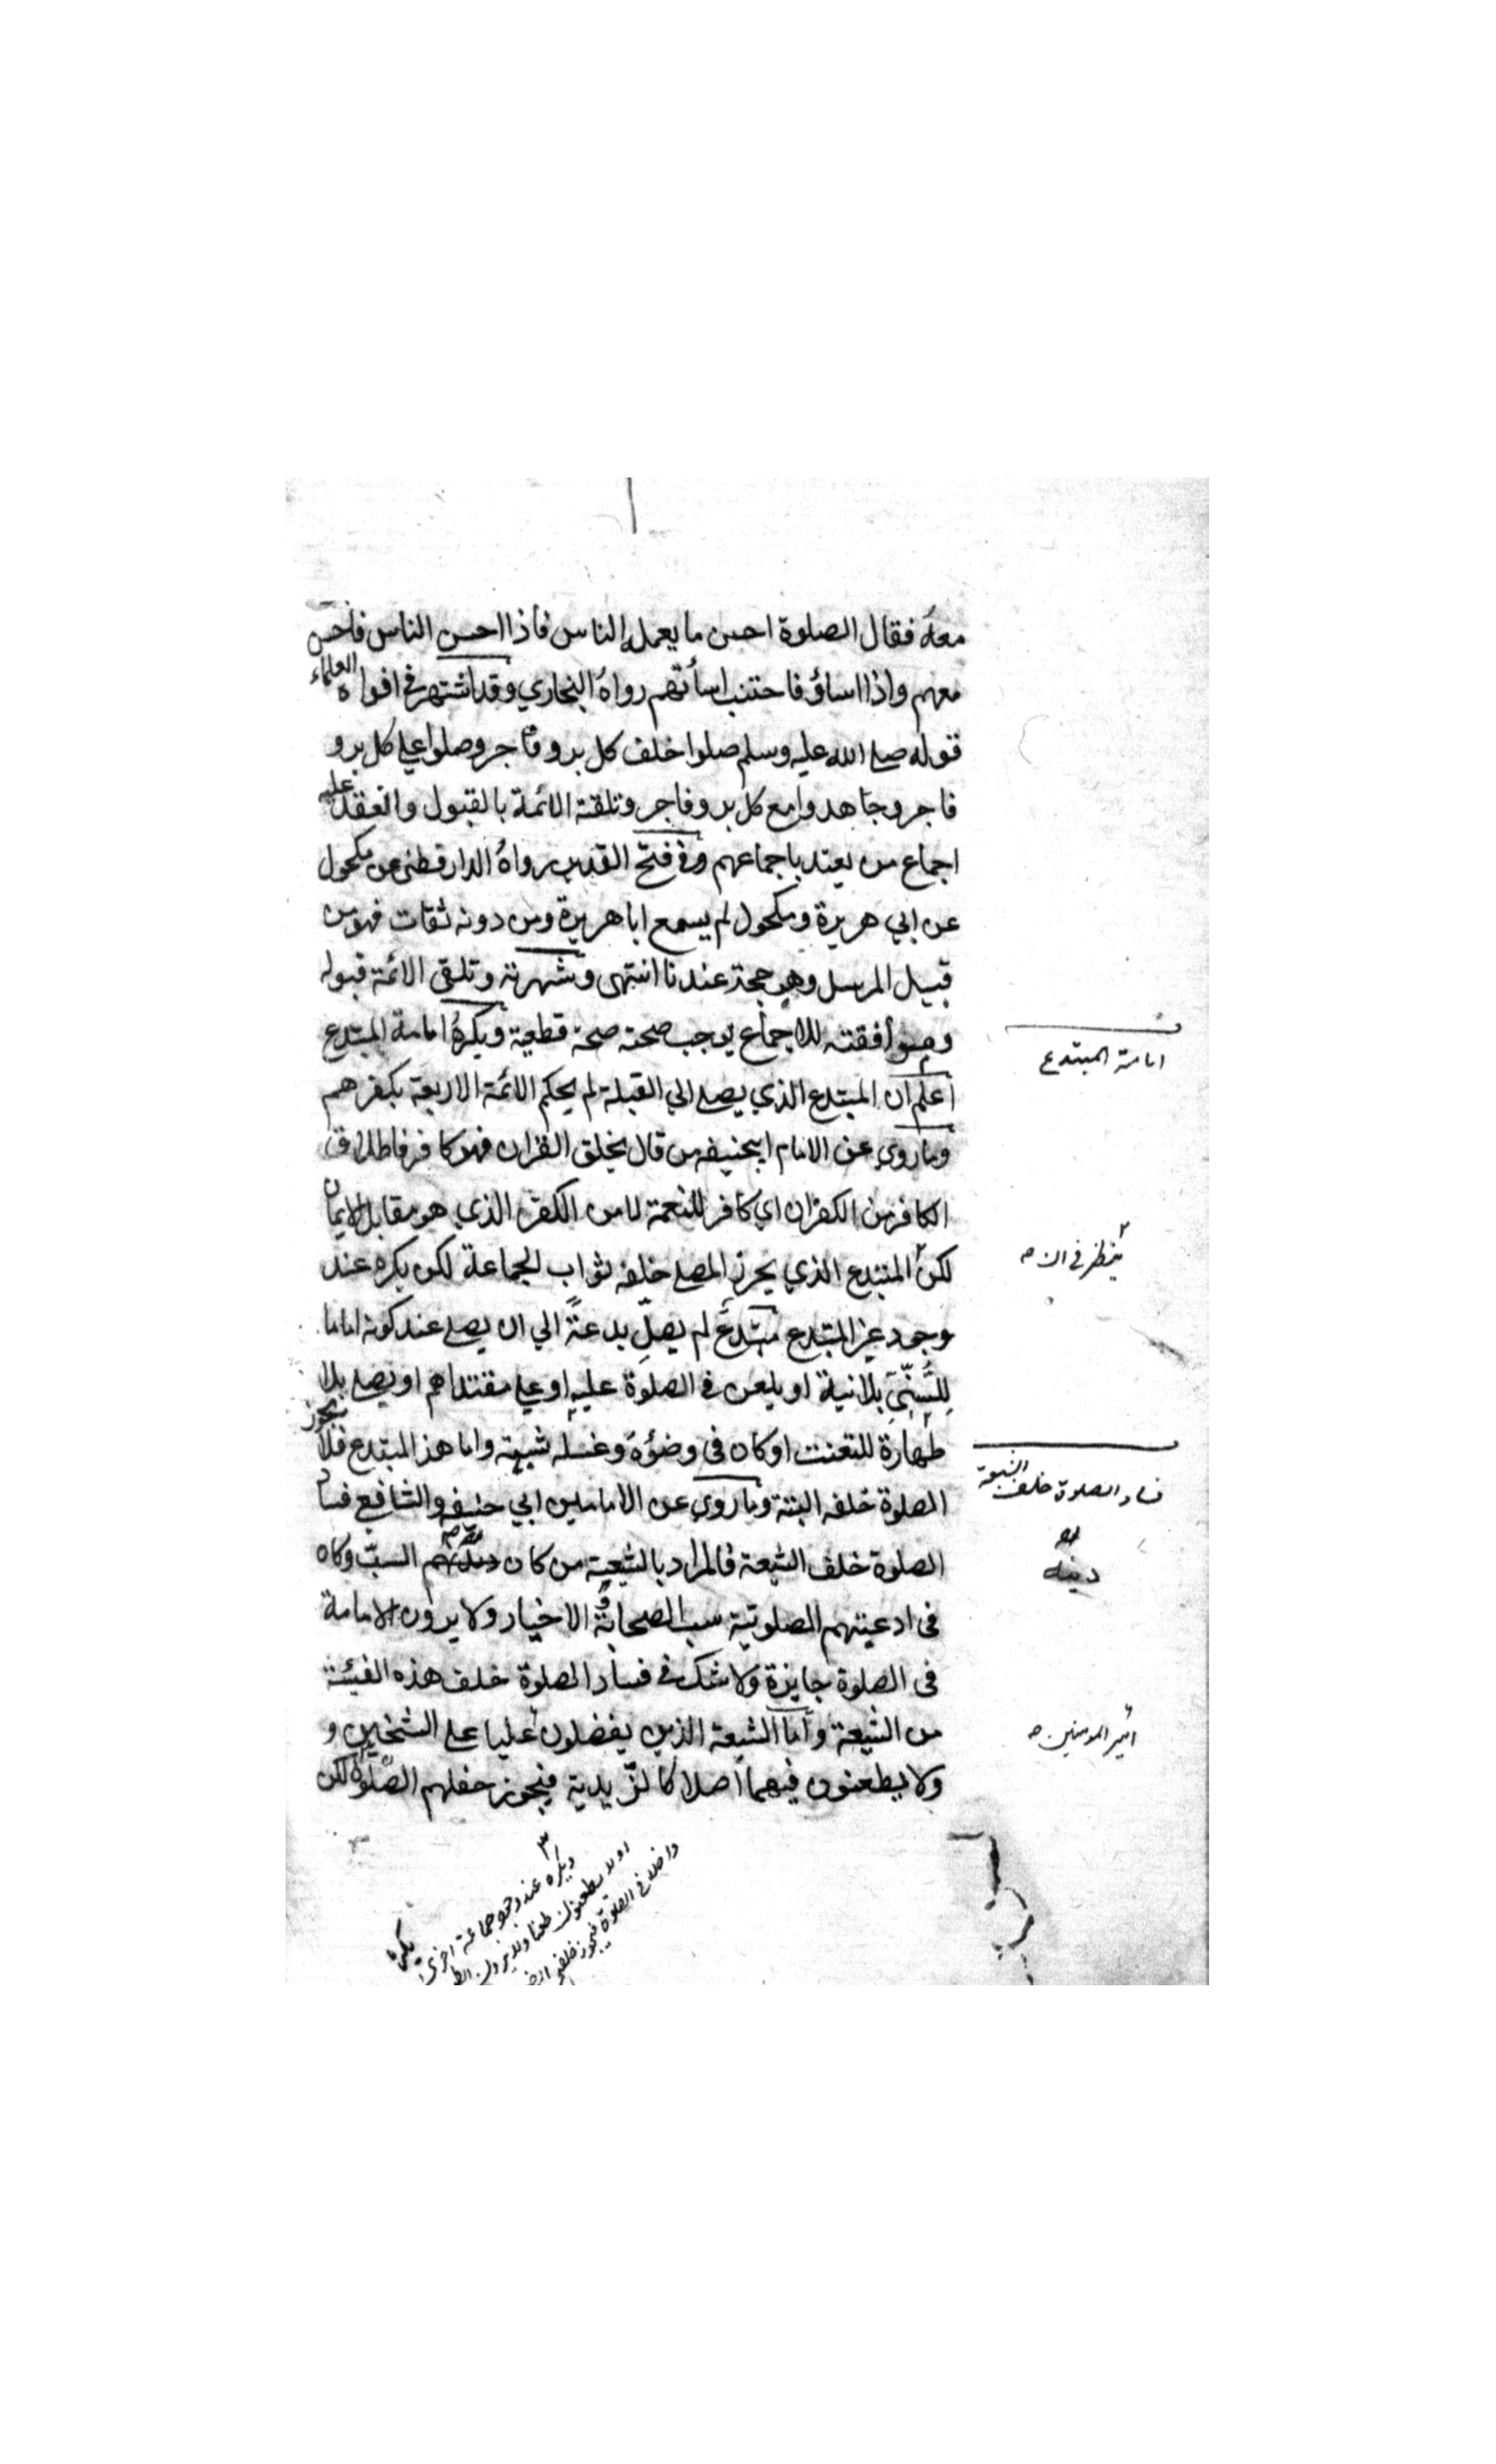 معه فقال الصلوة احسن ما يعمل الناس فاذا احسن الناس فاحسن
معهم واذا اساؤ فاجتنب اسأتهم رواه البخاري وقد اشتهر في افواه العلماء
قوله صلى الله عليه وسلم صلوا خلف كل بر و فاجر وصلوا على كل بر و
فاجر وجاهدوا مع كل بر و فاجر وتلقته الائمة بالقبول وانعقد عليه
اجماع من يعتد باجماعهم وفي فتح القدير رواه الدارقطني عن مكحول
عن ابي هريرة ومكحول لم يسمع ابا هريرة ومن دونه ثقات فهو من
قبيل المرسل وهو حجة عندنا انتهى وشهرته وتلقى الائمة قبوله
وموافقته للاجماع يوجب صحته صحة قطعية ويكره امامة المبتدع
اعلم ان المبتدع الذي يصلي الي القبلة لم يحكم الائمة الاربعة بكفرهم
وما روي عن الامام ابيحنيفه من قال بخلق القران فهو كافر فاطلاق
الكافر من الكفران اي كافر للنعمة لا من الكفر الذي هو مقابل الايمان
لكن المبتدع الذي يحرز المصلي خلفه ثواب الجماعة لكن يكره عند
وجود غير المبتدع مبتدع لم يصل بدعة الي ان يصلي عند كونه اماما
للسني بلا نية او يلعن في الصلوة عليه او على مقتداهم او يصلي بلا
طهارة للتعنت او كان في وضؤه وغسله شبهة واما هذ المبتدع فلا يجوز
الصلوة خلفه البتة وما روي عن الامامين ابي حنيفه والشافعي فساد
الصلوة خلف الشيعة فالمراد بالشيعة من كان السب وكان
في ادعيتهم الصلوتية سب الصحابة الاخيار ولا يرون الامامة
في الصلوة جايزة ولا شك في فساد الصلوة خلف هذه الفئية
من الشيعة واما الشيعة الذين يفضلون عليا على الشيخين و
ولا يطعنون فيهما اصلا كالزيدية فيجوز خفلهم الصلوة لكن
يكره
امامة المبتدع
ينظر في
فساد الصلوة خلف الشيعة
دينه
امير المومنين
ويكره عند وجود جماعة اخرى
او لا يطعنون طعنا ولا يرون
داخلا في الصلوة فيجوز خلفهم